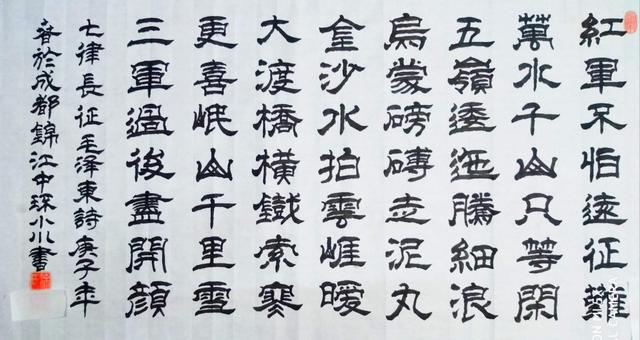 紅軍不怕遠征難
萬水千山只等閑
五嶺逶迤騰細浪
烏蒙磅礴走泥丸
金沙水拍雲崖暖
大渡橋橫鐵索寒
更喜岷山千里雪
三軍過後盡開顏
七律長征毛泽東詩庚子年
春於成都錦江中琛小川書